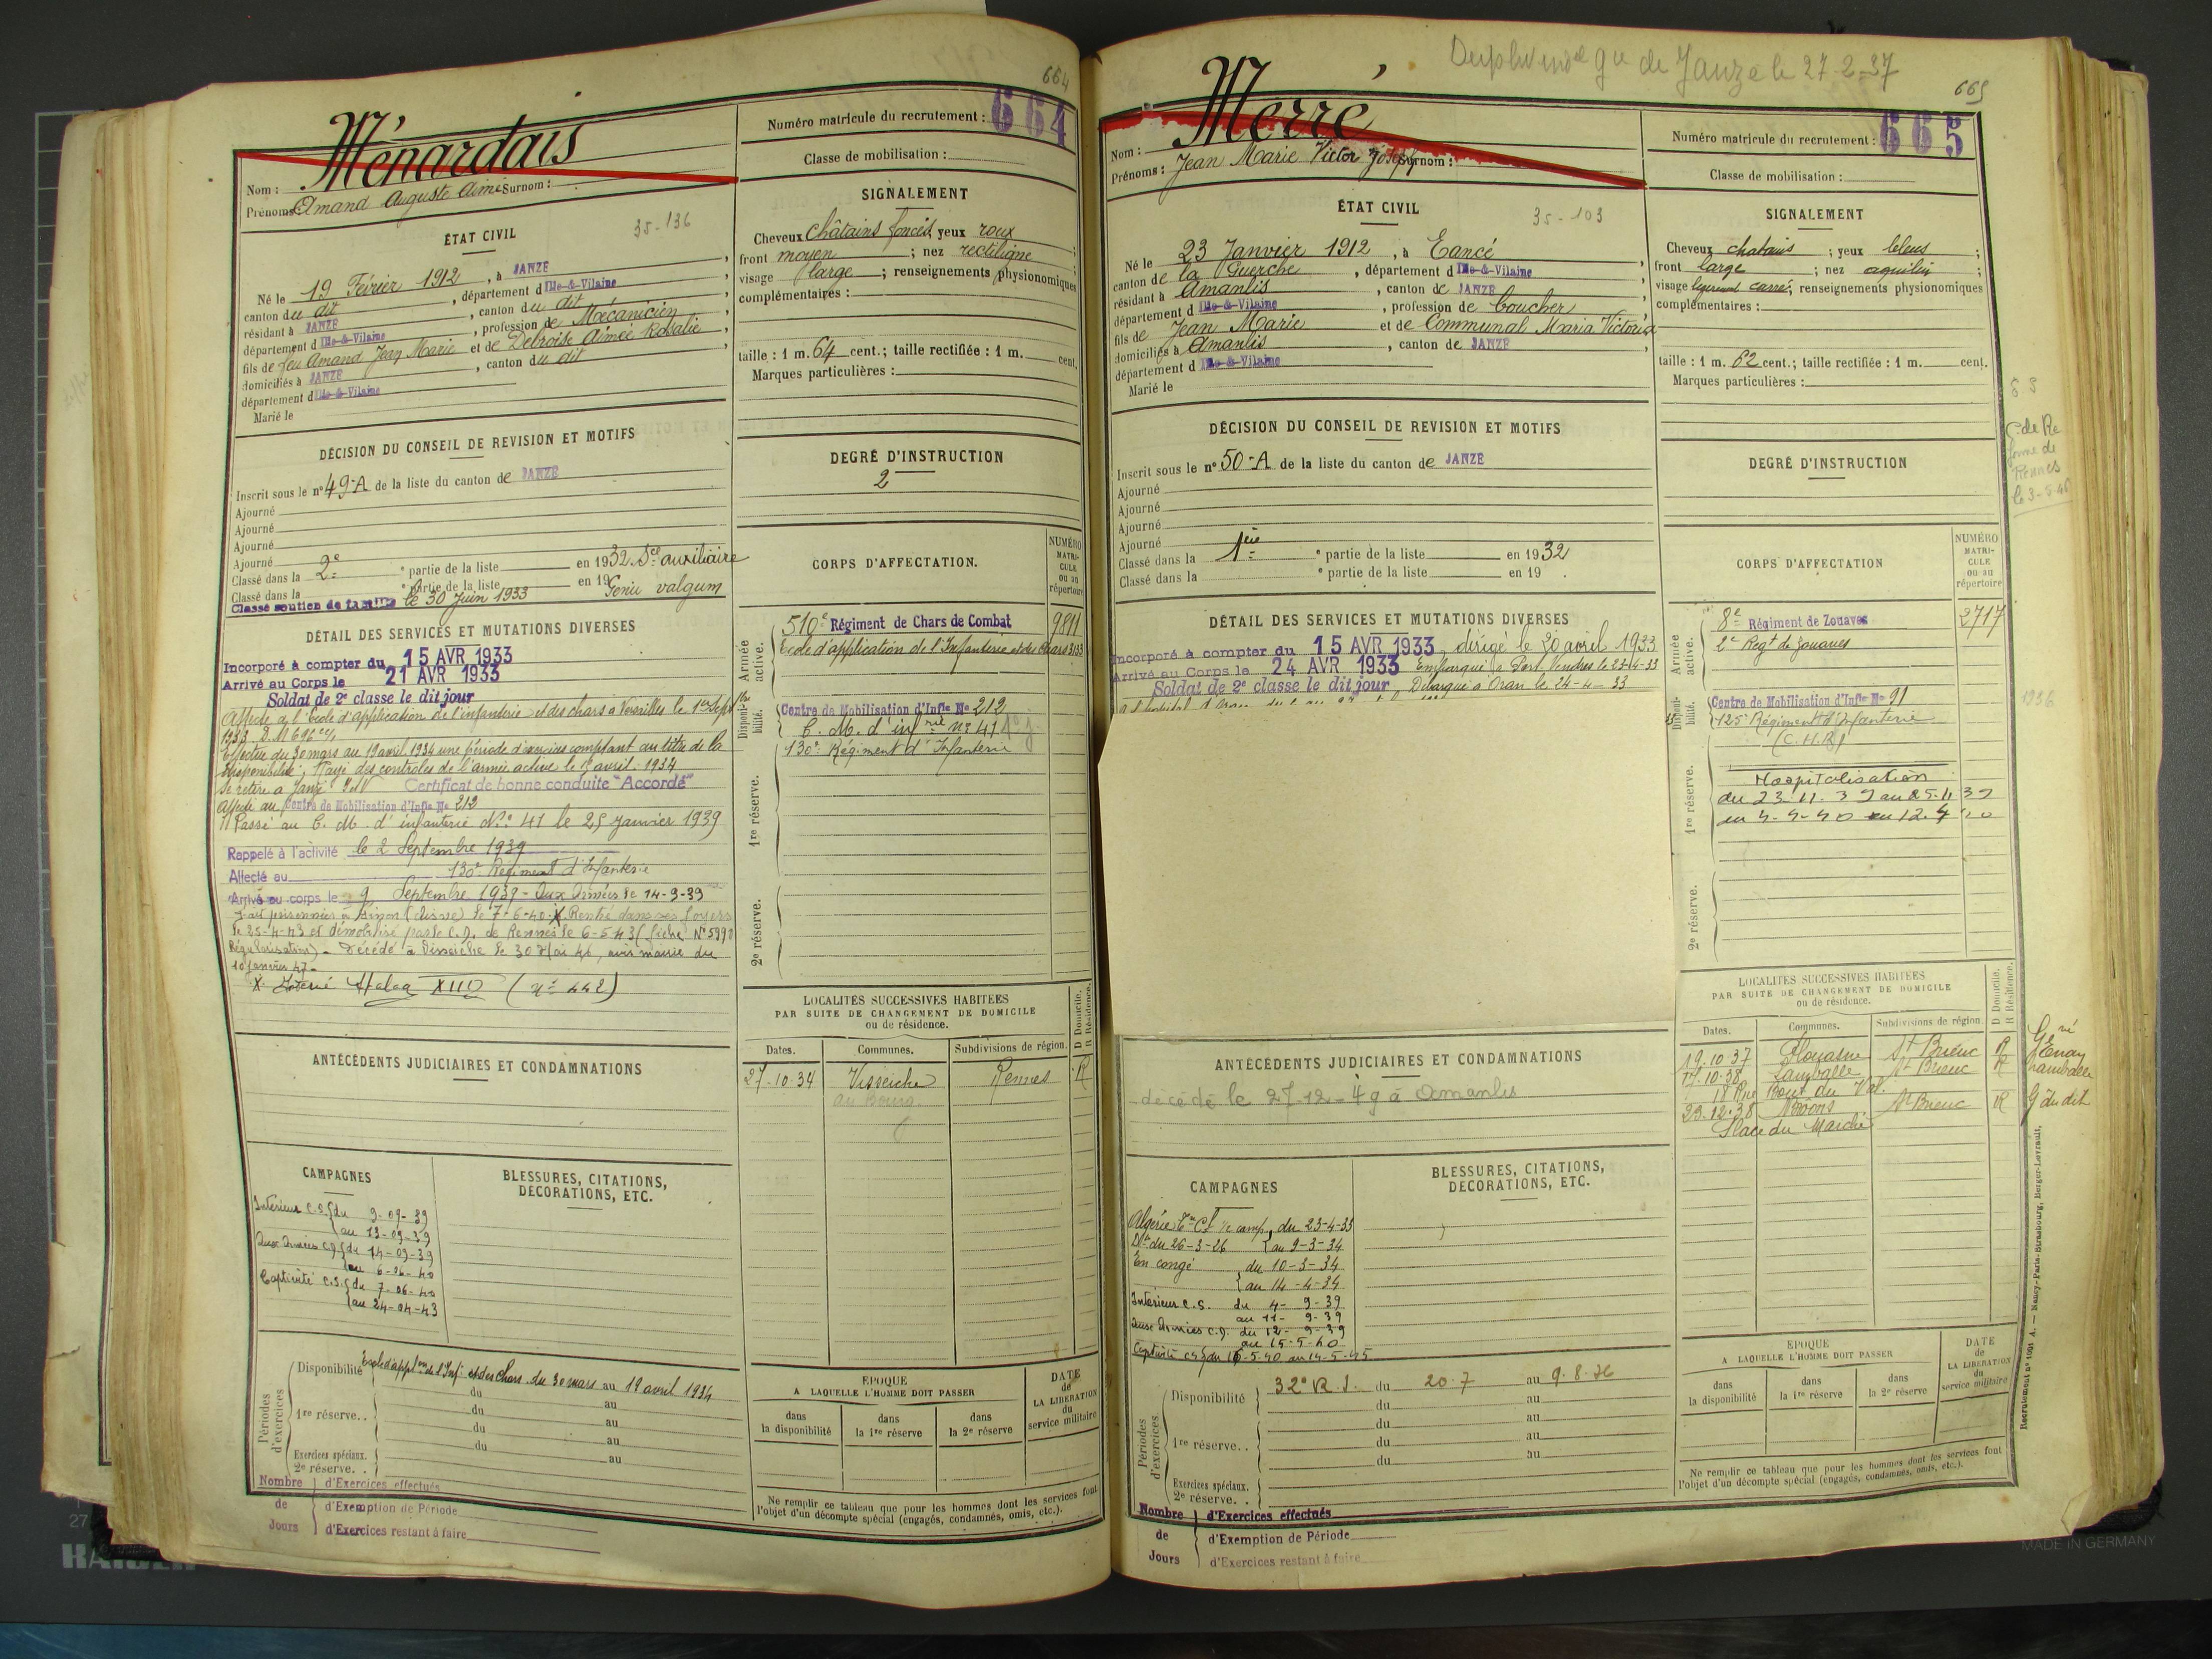 664
Ménardais
Nom :
Prénoms Amand Auguste Aimé Surnom :
Numéro matricule du recrutement : 664
Classe de mobilisation :
ÉTAT CIVIL
35-136
Né le 19 Février 1912, à JANZÉ,
canton du dit, département d Ille-&-Vilaine
résidant à JANZÉ, canton du dit,
département d Ille-&-Vilaine, profession de Mécanicien
fils de feu Amand Jean Marie et de Debroise Aimée Rosalie,
domiciliés à JANZÉ, canton du dit,
département d Ille-&-Vilaine
Marié le
SIGNALEMENT
Cheveux châtains foncés yeux roux ;
front moyen ; nez rectiligne ;
visage large ; renseignements physionomiques
complémentaires :
taille : 1 m. 64 cent.; taille rectifiée : 1 m. cent.
Marques particulières :
DÉCISION DU CONSEIL DE REVISION ET MOTIFS
Inscrit sous le n° 49-A de la liste du canton de JANZÉ
Ajourné
Ajourné
Ajourné
Ajourné
Classé dans la 2e partie de la liste en 1932 Sce auxiliaire
Classé dans la e partie de la liste en 19 Genu valgum
Classé soutien de famille le 30 Juin 1933
DEGRÉ D'INSTRUCTION
2
DÉTAIL DES SERVICES ET MUTATIONS DIVERSES
Incorporé à compter du 15 AVR 1933
Arrivé au Corps le 21 AVR 1933
Soldat de 2e classe le dit jour
Affecté à l'école d'application de l'infanterie et des chars à Versailles le 1er Sept
1933 D.M 696
Effectue du 30 mars au 19 avril 1934 une période d'exercices comptant au titre de la
disponibilité, Rayé des contrôles de l'armée active le avril 1934
Se retire à Janzé I et V Certificat de bonne conduite "Accordé"
Affecté au Centre de Mobilisation d'Infie No 212
Passé au C. M. d'infanterie N° 41 le 25 Janvier 1939
Rappelé à l'activité le 2 Septembre 1939
Affecté au 130e Régiment d'Infanterie
Arrivé au corps le 9 Septembre 1939 - Aux Armées le 14-9-39
Fait prisonnier à (Aisne) le 7-6-40. X Rentré dans ses foyers
le 25-4-43 et démobilisé par le C.D. de Rennes le 6-5-43 (fiche N° 5990
Régularisation) - Décédé à Visseiche le 30 Mai 46, avis mairie du
10 Janvier 47 -
X Interné Stalag XIII D (n° 442)
CORPS D'AFFECTATION.
NUMÉRO MATRICULE ou au répertoire
Armée active.
510e Régiment de Chars de Combat 9811
École d'application de l'Infanterie et des Chars 3133
Disponibilité.
Centre de Mobilisation d'Infie No 212
C. M. d'infrie n° 41
130e Régiment d'Infanterie
1re réserve.
2e réserve.
ANTÉCÉDENTS JUDICIAIRES ET CONDAMNATIONS
LOCALITÉS SUCCESSIVES HABITÉES
PAR SUITE DE CHANGEMENT DE DOMICILE
ou de résidence.
D Domicile. R Résidence.
Dates. Communes. Subdivisions de région.
27-10-34 Visseiche Rennes R
au Bourg
CAMPAGNES
Intérieur C.S. du 9-09-39
au 13-09-39
Aux Armées C.D. du 14-09-39
au 6-06-40
Captivité C.S. du 7-06-40
au 24-04-43
BLESSURES, CITATIONS,
DÉCORATIONS, ETC.
Périodes d'exercices
Disponibilité École d'applon de l'Inf. et des Chars du 30 mars au 19 avril 1934
du au
1re réserve.. du au
du au
du au
Exercices spéciaux. au
2e réserve. .
Nombre d'Exercices effectués
de d'Exemption de Période
Jours d'Exercices restant à faire
ÉPOQUE
A LAQUELLE L'HOMME DOIT PASSER
dans la disponibilité
dans la 1re réserve
dans la 2e réserve
DATE de LA LIBÉRATION du service militaire
Ne remplir ce tableau que pour les hommes dont les services font
l'objet d'un décompte spécial (engagés, condamnés, omis, etc.).
de Janzé le 27-2-37
665
Merré
Nom :
Prénoms : Jean Marie Victor Joseph Surnom :
Numéro matricule du recrutement : 665
Classe de mobilisation :
ÉTAT CIVIL
35-103
Né le 23 Janvier 1912, à Eancé,
canton de la Guerche, département d Ille-&-Vilaine
résidant à Amanlis, canton de JANZÉ,
département d Ille-&-Vilaine, profession de boucher
fils de Jean Marie et de Communal Maria Victoria
domiciliés à Amanlis, canton de JANZÉ,
département d Ille-&-Vilaine
Marié le
SIGNALEMENT
Cheveux chatains ; yeux bleus ;
front large ; nez aquilin ;
visage légèrement carré ; renseignements physionomiques
complémentaires :
taille : 1 m. 62 cent.; taille rectifiée : 1 m. cent.
Marques particulières :
C. de Ré
forme de
Rennes
le 3-5-46
DÉCISION DU CONSEIL DE REVISION ET MOTIFS
Inscrit sous le n° 50-A de la liste du canton de JANZÉ
Ajourné
Ajourné
Ajourné
Ajourné
Classé dans la 1ère e partie de la liste en 1932
Classé dans la e partie de la liste en 19 .
DEGRÉ D'INSTRUCTION
DÉTAIL DES SERVICES ET MUTATIONS DIVERSES
Incorporé à compter du 15 AVR 1933, dirigé le 20 avril 1933
Arrivé au Corps le 24 AVR 1933 Embarqué à Port Vendres le 23-4-33
Soldat de 2e classe le dit jour Débarqué à Oran le 24-4-33
CORPS D'AFFECTATION
NUMÉRO MATRICULE ou au répertoire
Armée active.
8e Régiment de Zouaves 2717
2e Regt de Zouaves
Disponibilité.
Centre de Mobilisation d'Infie No 91
125e Régiment d'Infanterie
(C.H.R)
1936
1re réserve.
Hospitalisation
du 23-11-39 au 25-11-39
2e réserve.
ANTÉCÉDENTS JUDICIAIRES ET CONDAMNATIONS
décédé le 27-12-49 à Amanlis
LOCALITÉS SUCCESSIVES HABITÉES
PAR SUITE DE CHANGEMENT DE DOMICILE
ou de résidence.
D Domicile. R Résidence.
Dates. Communes. Subdivisions de région.
19.10.37 Plouasne St Brieuc R
17.10.38 Lamballe St Brieuc R Lamballe
18 Rue Bout du Val.
23.12.38 Broons St Brieuc R G du dit
Place du Marché
CAMPAGNES
du 23-4-33
Dt du 26-3-26 au 9-3-34
En congé du 10-3-34
au 14-4-34
Intérieur C.S. du 4-9-39
au 11-9-39
Aux Armées C.D. du 12-9-39
au 15-5-40
Captivité CS du 16-5-40 au 14-5-45
BLESSURES, CITATIONS,
DÉCORATIONS, ETC.
Périodes d'exercices.
Disponibilité 32e R.I. du 20.7 au 9.8.36
du au
du au
1re réserve. . du au
du au
Exercices spéciaux.
2e réserve. .
Nombre d'Exercices effectués
de d'Exemption de Période
Jours d'Exercices restant à faire
ÉPOQUE
A LAQUELLE L'HOMME DOIT PASSER
dans la disponibilité
dans la 1re réserve
dans la 2e réserve
DATE de LA LIBÉRATION du service militaire
Ne remplir ce tableau que pour les hommes dont les services font
l'objet d'un décompte spécial (engagés, condamnés, omis, etc.).
Recrutement n° 1001 A. — Nancy-Paris-Strasbourg, Berger-Levrault.
27
KAISER
MADE IN GERMANY